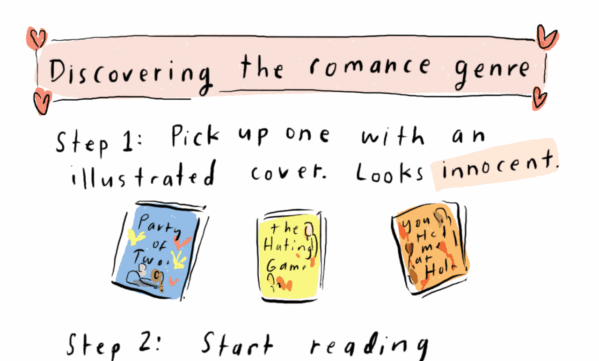 Discovering the romance genre
Step 1: Pick up one with an
illustrated cover. Looks innocent.
Party
of
Two.
the
Hating
Game
You
Had
me
at
Hola
Step 2: Start reading